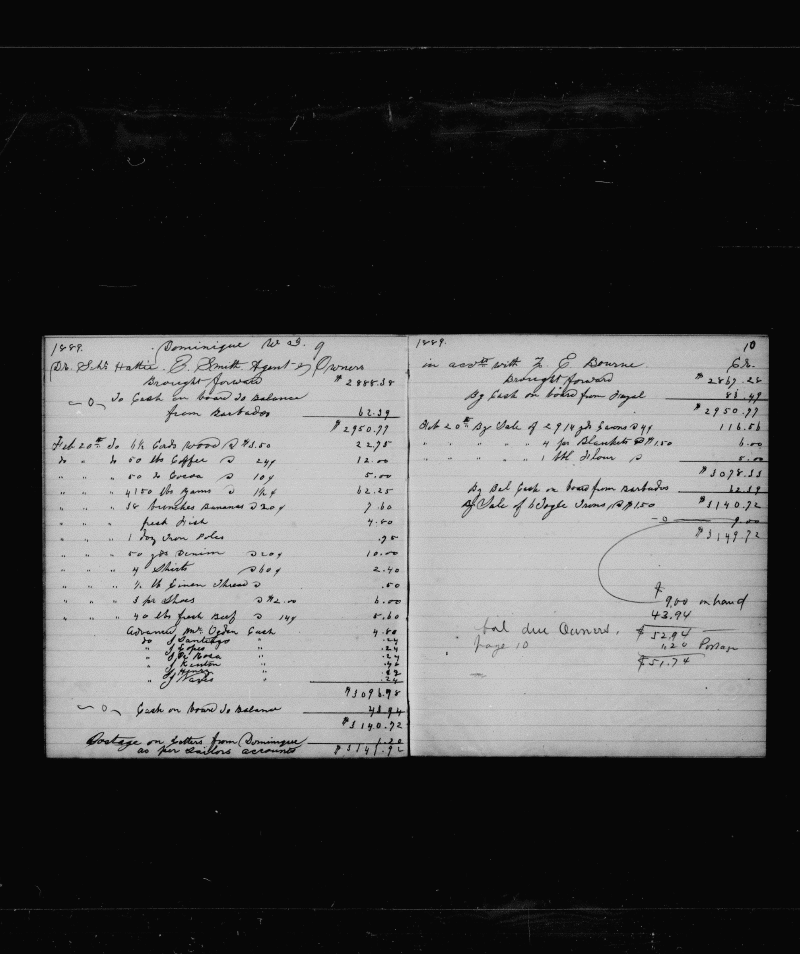 1889. Dominique W I. 9
Dr. Schr Hattie E. Smith Agent & Owners
Brought forward $2888.38
To Cash on board To Balance
from Barbados 62.39
$2950.77
Feb 20th To 6½ Cords Wood @ $3.50 22.75
do " " 50 lbs Coffee @ 24¢ 12.00
" " " 50 do Cocoa @ 10¢ 5.00
" " " 4150 lbs Yams @ 1½¢ 62.25
" " " 38 bunches Bananas @ 20¢ 7.60
" " " fresh Fish 4.80
" " " 1 Doz Iron Poles .75
" " " 50 yds Denim @ 20¢ 10.00
" " " 4 Shirts @ 60¢ 2.40
" " " ½ lb Linen Thread @ .50
" " " 3 pr Shoes @ $2.00 6.00
" " " 40 lbs fresh Beef @ 14¢ 5.60
Advance Mr. Ogden Cash 4.80
do J Santiago " .24
" J Lopes " .24
" J De Rosa " .24
" J Kenton "
" J Henry "
" J Naves " .24
$3096.78
Cash on board To Balance 43.94
$3140.72
Postage on Letters from Dominique 1.20
as per Sailors accounts $3141.92
1889. 10
in acctt with F. E Bourne Cr.
Brought forward $2867.28
By Cash on board from Fayal 83.49
$2950.77
Feb 20th By Sale of 2914 yds @ 4¢ 116.56
" " " " 4 pr Blankets @ $1.50 6.00
" " " " 1 bbl Flour @ 5.00
$3078.33
By Bal Cash on board from Barbados 62.39
$3140.72
By Sale of 6 Togle Irons @ $1.50 9.00
$3149.72
$
9.00 on hand
43.94
bal due Owners. $52.94
page 10 1.20 Postage
$51.74